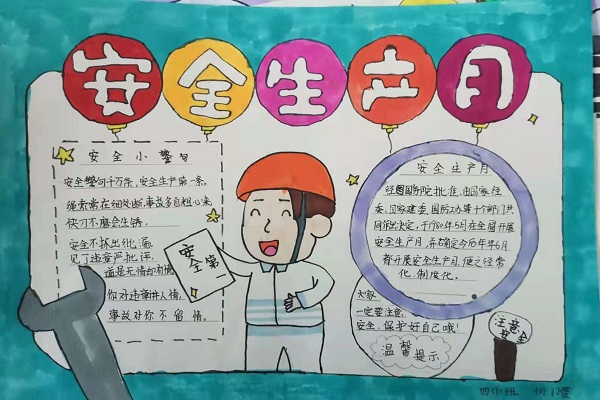 安全生产月
安全小警句
安全警句千万条,安全生产第一条。
绳索常在细处断,事故多自粗心来
快刀不磨会生锈,
安全不抓出纰漏
见了违章严批评,
道是无情却有情
你对违章讲人情,
事故对你不留情。
安全第一
安全生产月
经国务院批准,由国家经
委、国家建委、国防工办等十个部门共
同作出决定,于1980年5月在全国开展
安全生产月,并确定今后每年6月
都开展安全生产月,使之经常
化、制度化。
大家
一定要注意
安全,保护好自己哦!
温馨提示
注意
安全